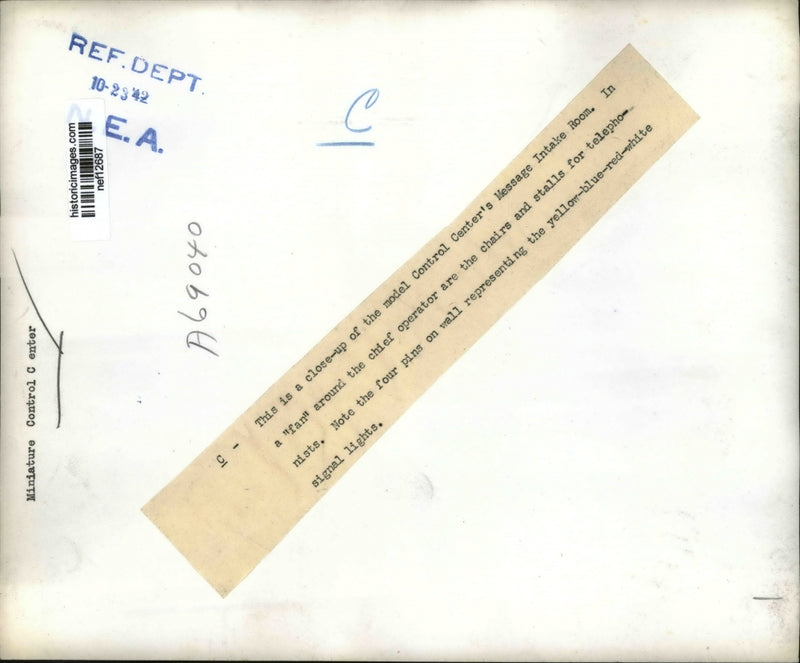 REF. DEPT.
10-23 42
N. E. A.
historicimages.com
nef12687
C
A69040
Miniature Control C enter
C - This is a close-up of the model Control Center's Message Intake Room. In
a "fan" around the chief operator are the chairs and stalls for telepho-
nists. Note the four pins on wall representing the yellow-blue-red-white
signal lights.